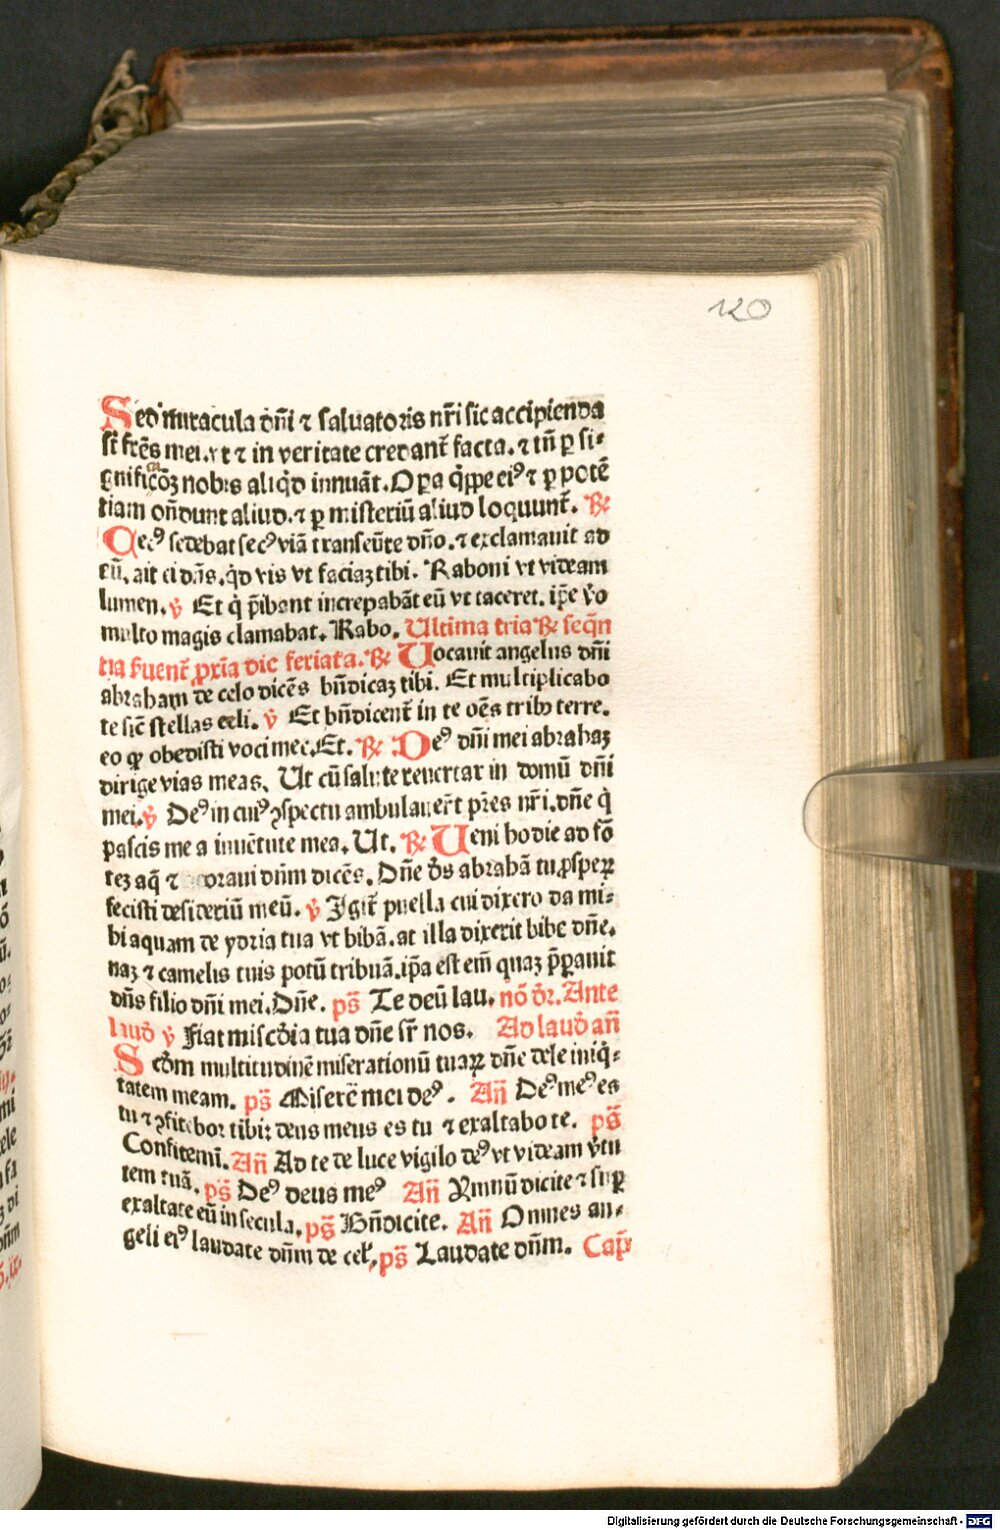 120
Sed miracula dñi ⁊ saluatoris nr̃i sic accipienda
st̃ fr̃es mei. vt ⁊ in veritate credant̃ facta. ⁊ tñ ꝑ si-
gnificõꝫ nobis aliq̇d innuãt. Oꝑa q̇ꝓpe eiꝰ ⁊ ꝑ potẽ
tiam oñdunt aliud. ⁊ ꝑ misteriũ aliud loquunt̃. ℟
Cecꝰ sedebat secꝰ viã transeũte dño. ⁊ exclamauit ad
eũ. ait ei dñs. q̇d vis vt faciaꝫ tibi. Raboni vt videam
lumen. ℣ Et q̇ p̃ibant increpabãt eũ vt taceret. ip̃e v̊o
multo magis clamabat. Rabo. Ultima tria ℟ seq̃n
tia fuent̃ ꝓxĩa dic feriata. ℟ Uocauit angelus dñi
abraham de celo dicẽs bñdicaꝫ tibi. Et multiplicabo
te sic̃ stellas celi. ℣ Et bñdicent̃ in te oẽs tribꝫ terre.
eo ꝙ obedisti voci mee. Et. ℟ Deꝰ dñi mei abrahaꝫ
dirige vias meas. Ut cũ salute reuertar in domũ dñi
mei. ℣ Deꝰ in cuiꝰ ꝯspectu ambulauer̃t pr̃es nr̃i. dñe q̇
pascis me a iuuẽtute mea. Ut. ℟ Ueni hodie ad fõ
teꝫ aq̃ ⁊ oraui dñm dicẽs. Dñe d̃s abrahã tu ꝓsperꝝ
fecisti desideriũ meũ. ℣ Igit̃ puella cui dixero da mi-
hi aquam de ydria tua vt bibã. at illa dixerit bibe dñe.
naꝫ ⁊ camelis tuis potũ tribuã. ip̃a est em̃ quaꝫ p̃parauit
dñs filio dñi mei. Dñe. ps̃ Te deũ lau. nõ d̃r. Ante
laud̃ ℣ Fiat miscd̃ia tua dñe sr̃ nos. Ad laud̃ añ
Scd̃m multitudinẽ miserationũ tuaꝝ dñe dele iniq̇-
tatem meam. ps̃ Miserẽ mei deꝰ. Añ Deꝰ meꝰ es
tu ⁊ ꝯfitebor tibi: deus meus es tu ⁊ exaltabo te. ps̃
Confitemĩ. Añ Ad te de luce vigilo deꝰ vt videam v̊tu
tem tuã. ps̃ Deꝰ deus meꝰ Añ Ymnũ dicite ⁊ suꝑ
exaltate eũ in secula. ps̃ Bñdicite. Añ Omnes an-
geli eiꝰ laudate dñm de cel̃. ps̃ Laudate dñm. Cap̃
Digitalisierung gefördert durch die Deutsche Forschungsgemeinschaft - DFG